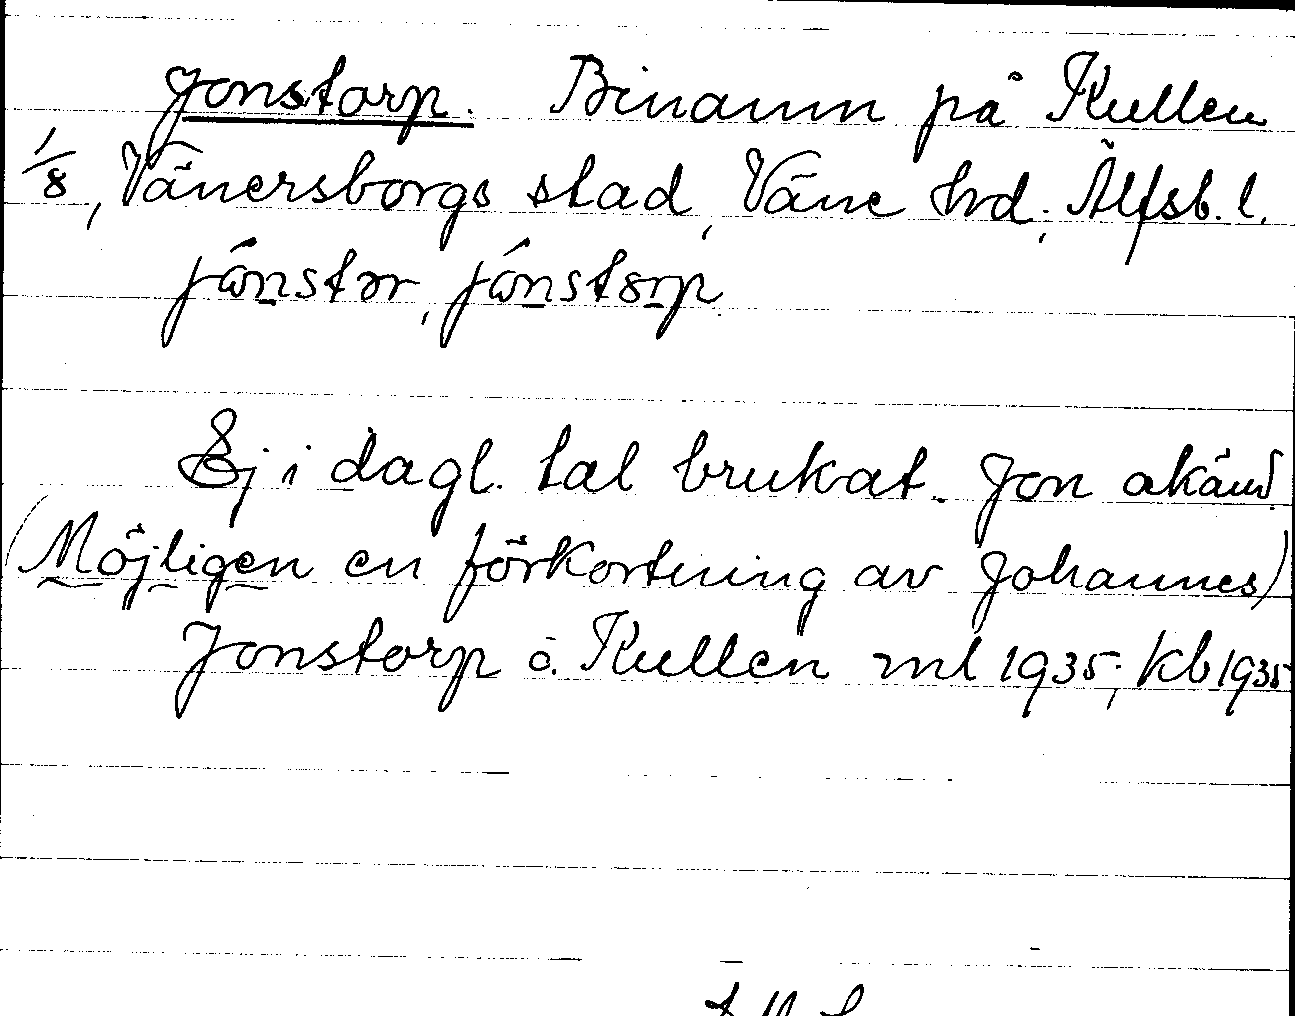 Jonstorp. Binamn på Kullen
1/8, Vänersborgs stad, Väne hd; Älfsb. l.
jónstər, jónstɔrp
Ej i dagl. tal brukat. Jon okänd
(Möjligen en förkortning av Johannes)
Jonstorp o. Kullen ml 1935; kb 1935